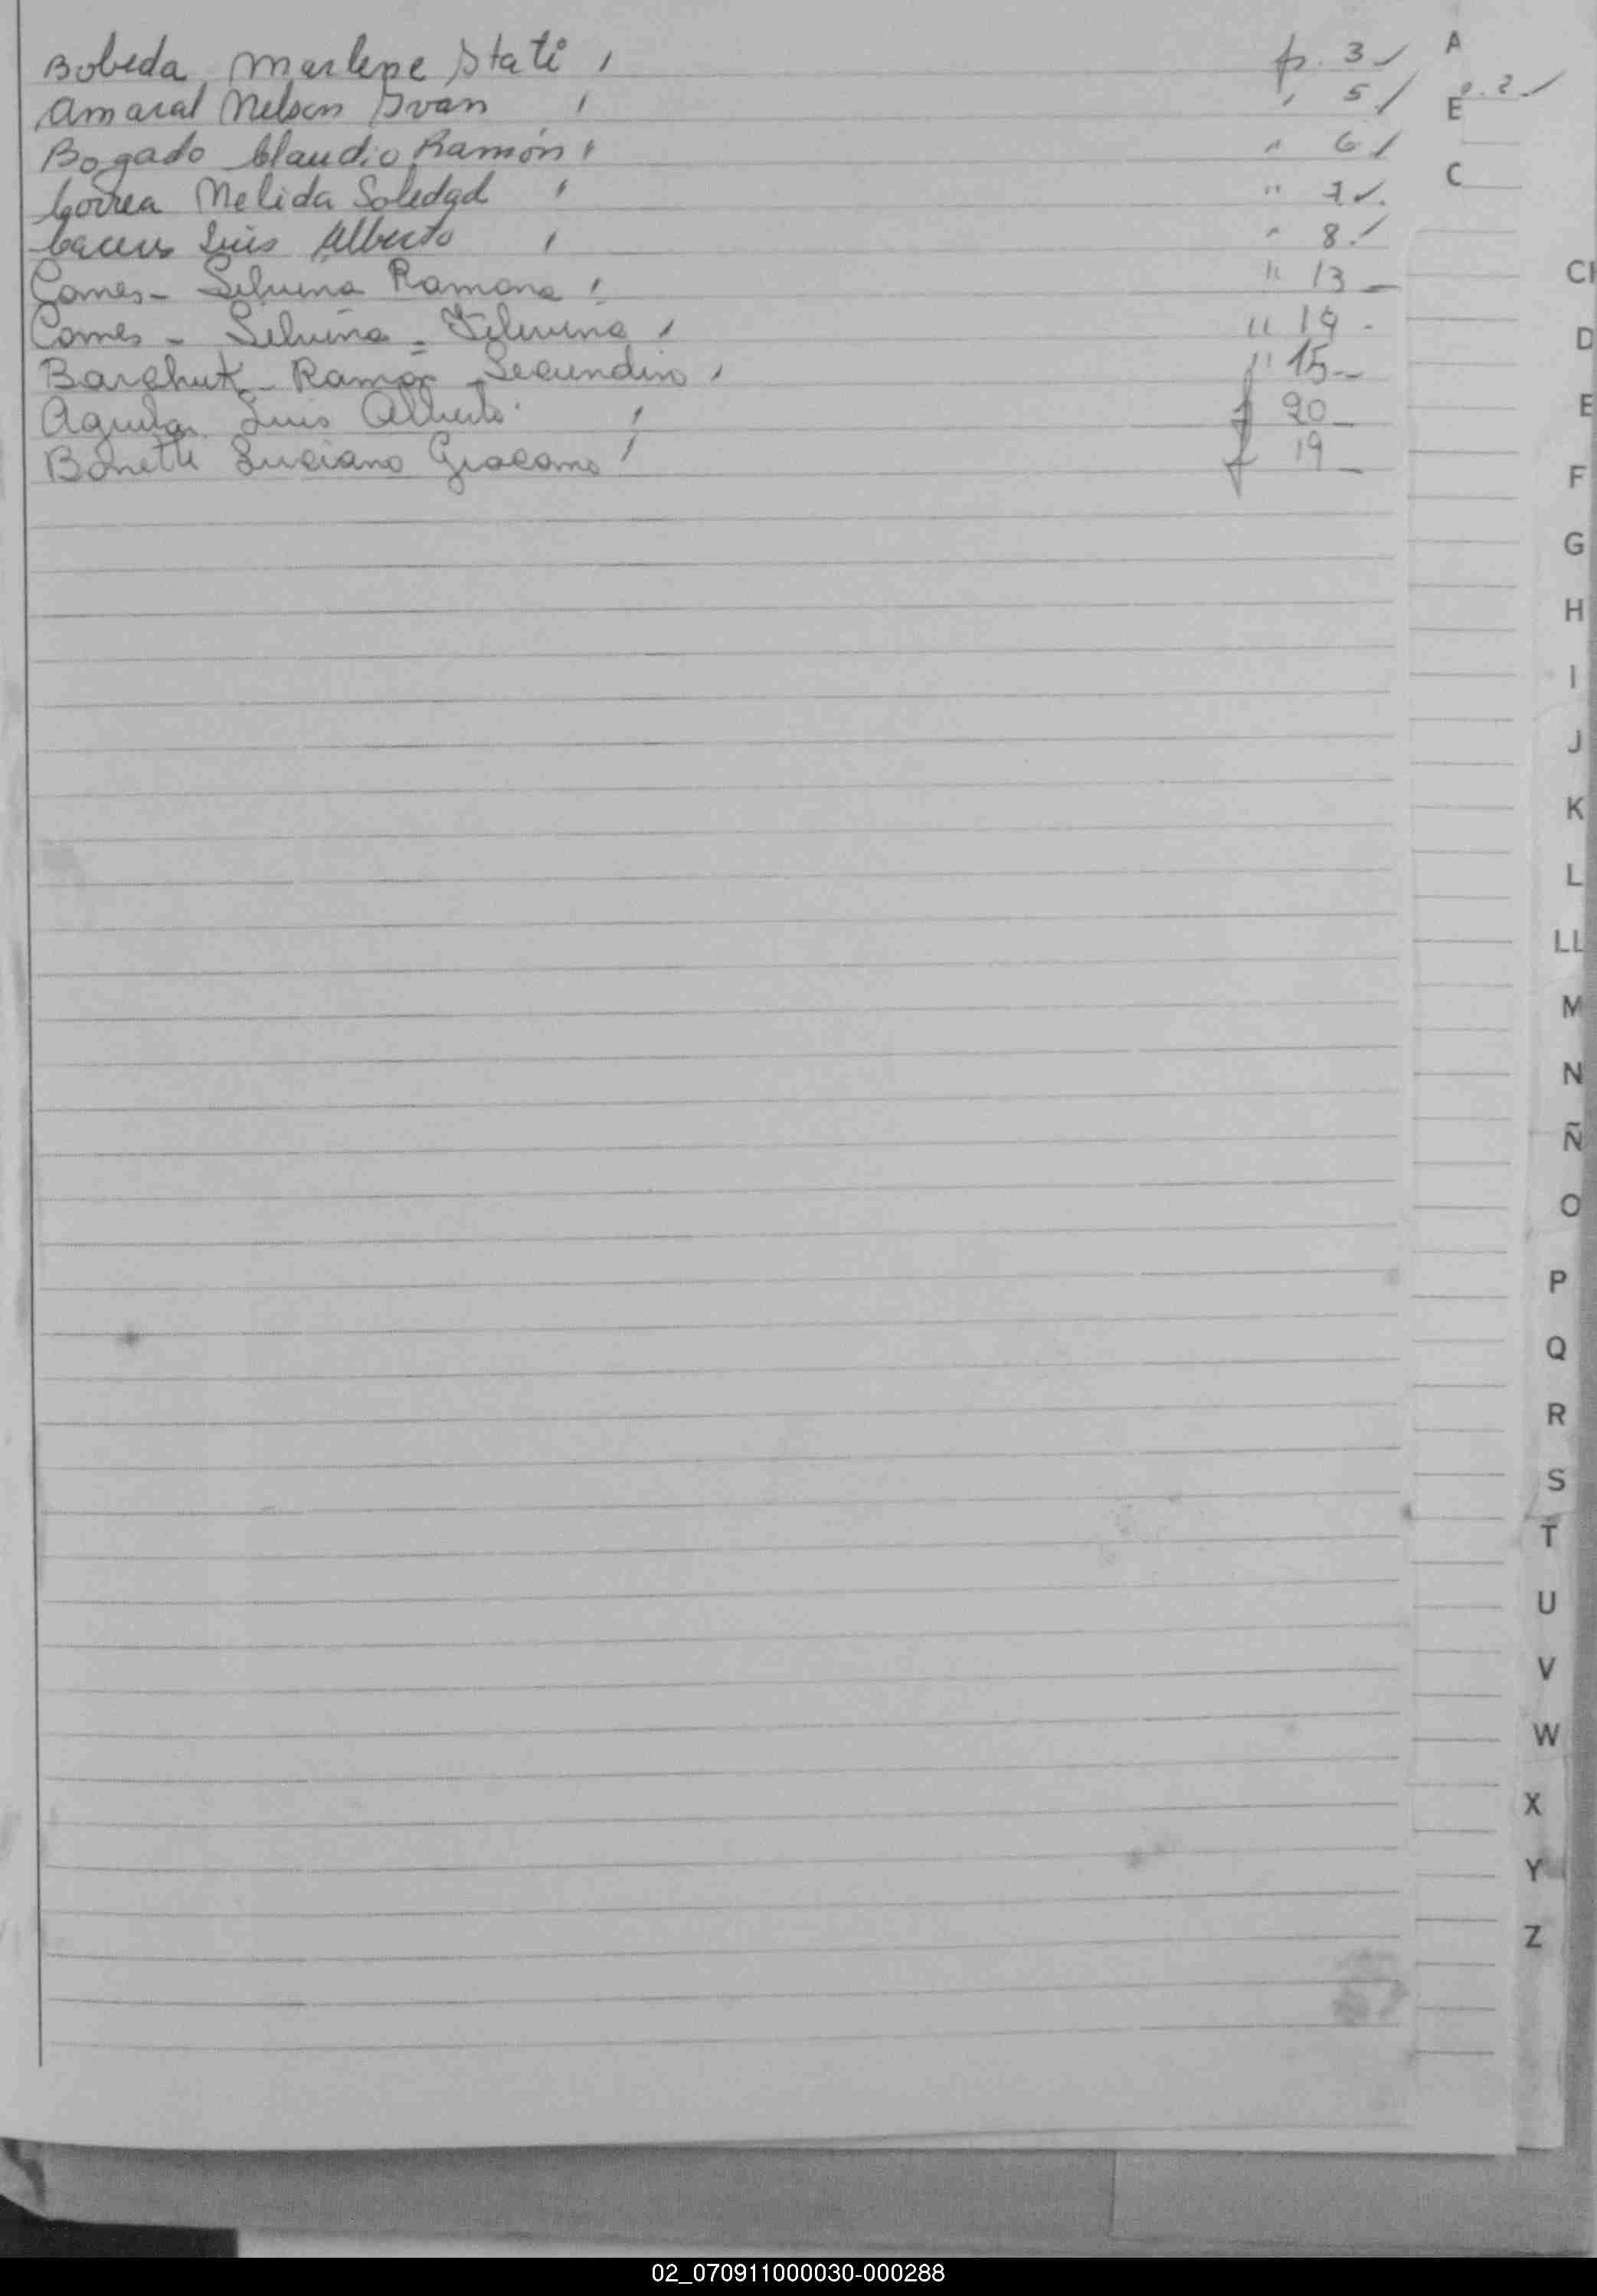 Bobeda, Marlene Stati , p. 3 ✓ A
p. 2 ✓
Amaral Nelson Ivan , " 5 / E
Bogado Claudio Ramón , " 6 /
Correa Melida Soledad , " 7 ✓. C
Luis Alberto , " 8 /
Gomes - Silvina Ramona , " 13 - CH
Gomes - Silvina = , " 14 - D
Barchuk - Ramon Secundino , " 15 -
Aguilar Luis Alberto , f 20 - E
Bonetti Luciano Giacomo , f 19 -
F
G
H
I
J
K
L
LL
M
N
Ñ
O
P
Q
R
S
T
U
V
W
X
Y
Z
02_070911000030-000288